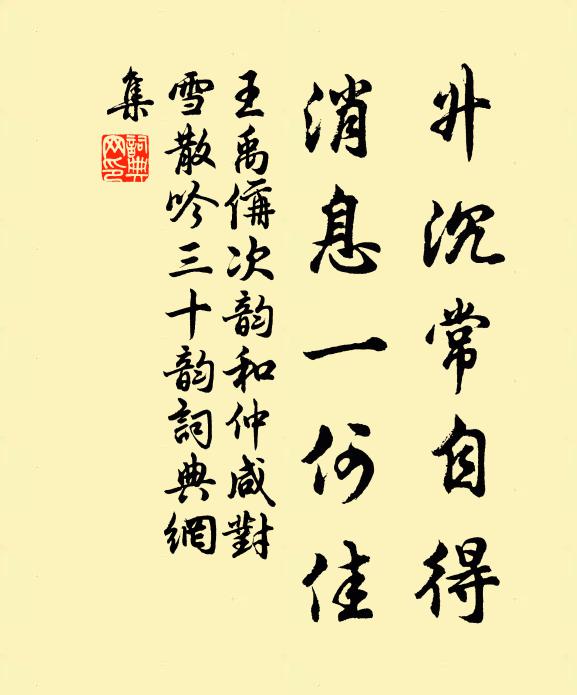 升沉常自得
消息一何佳
王禹偁次韵和仲咸對
雪散吟三十韵詞典網
集
詞典網印